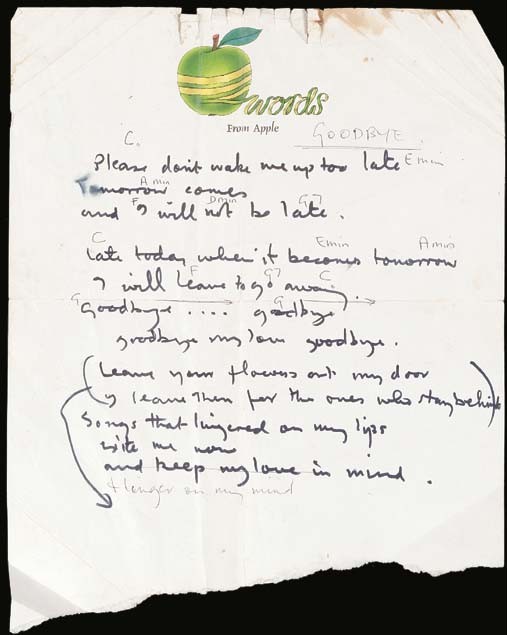 words
From Apple
GOODBYE.
C.
Please dont wake me up too late E min
A min
Tomorrow comes
F D min G7
and I will not be late.
C Emin Amin
Late today when it becomes tomorrow
F G7 C
I will leave to go away.
G G
Goodbye .... goodbye
goodbye my love goodbye.
(Leave your flowers at my door
leave them for the ones who stay behind)
Songs that lingered on my lips
xite me now
and keep my love in mind.
+ linger on my mind